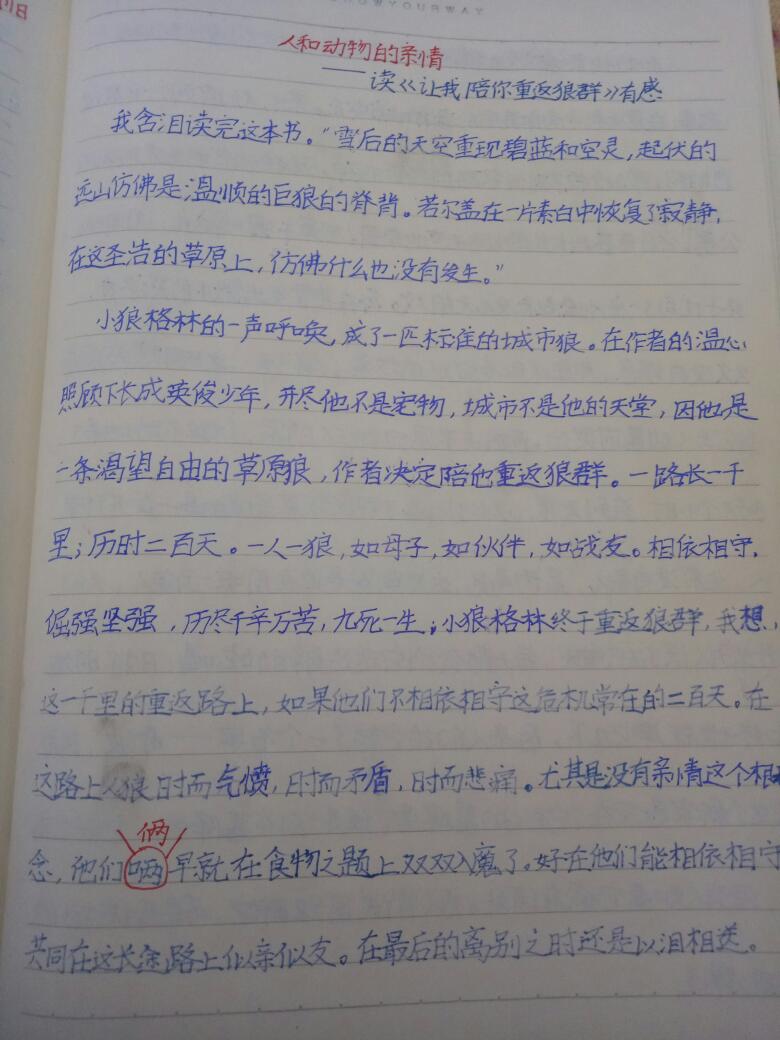 SHOWYOURWAY
人和动物的亲情
——读《让我陪你重返狼群》有感
我含泪读完这本书。“雪后的天空重现碧蓝和空灵,起伏的
远山仿佛是温顺的巨狼的脊背。若尔盖在一片素白中恢复了寂静,
在这圣浩的草原上,仿佛什么也没有发生。”
小狼格林的一声呼唤,成了一匹标准的城市狼。在作者的温心
照顾下长成英俊少年,并尽他不是宠物,城市不是他的天堂,因他是
一条渴望自由的草原狼,作者决定陪他重返狼群。一路长一千
里;历时二百天。一人一狼,如母子,如伙伴,如战友。相依相守,
倔强坚强,历尽千辛万苦,九死一生;小狼格林终于重返狼群,我想,
这一千里的重返路上,如果他们不相依相守这危机常在的二百天。在
这路上人狼时而气愤,时而矛盾,时而悲痛。尤其是没有亲情这个根
俩
念,他们啢早就在食物之题上双双入魔了。好在他们能相依相守
共同在这长余路上似亲似友。在最后的离别之时还是以泪相送。